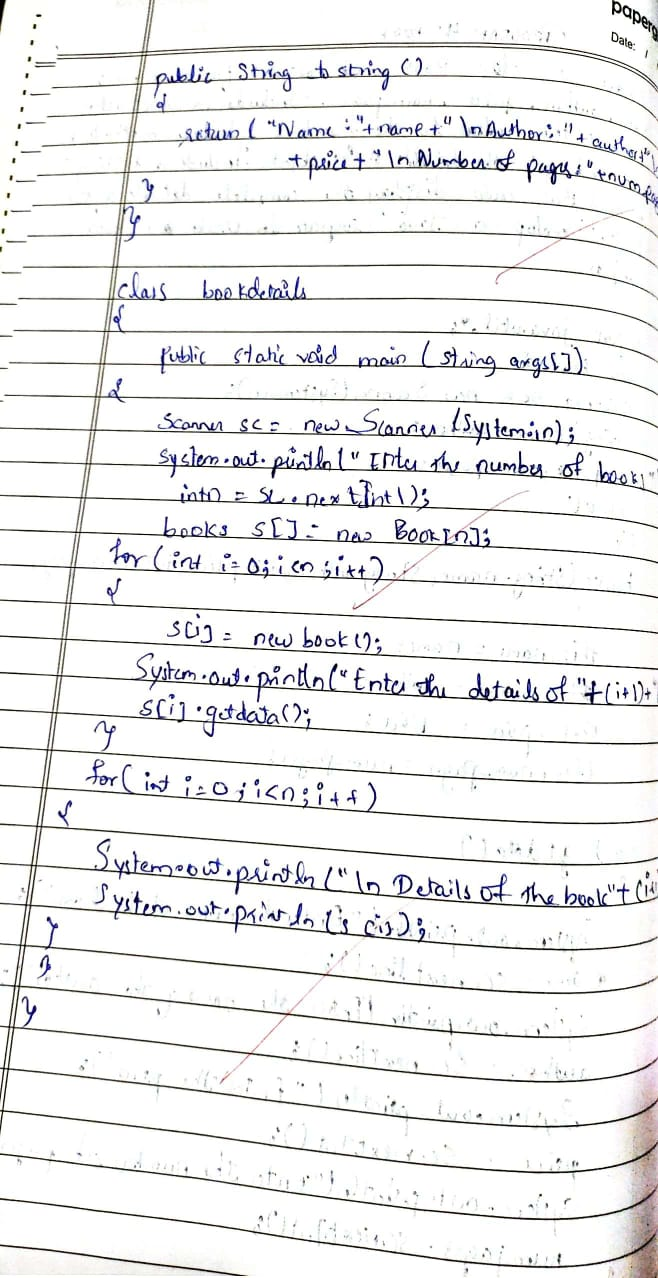 paperg
Date: /
public String to string ()
{
return ( "Name : "+ name + " \n Author : " + author + "\
+ price + " \n Number of pages : " + num pag
}
}
class bookdetails
{
public static void main ( string args[])
{
Scanner sc = new Scanner (System.in);
System.out.println (" Enter the number of books"
int n = sc.next Int ();
books s[] = new Book[n];
for ( int i = 0; i < n ; i++)
{
s[i] = new book ();
System.out.println (" Enter the details of "+(i+1)+
s[i].getdata();
}
for ( int i = 0 ; i < n ; i++)
{
System.out.println (" \n Details of the book" + (i+
System.out.println (s [i]);
}
}
}